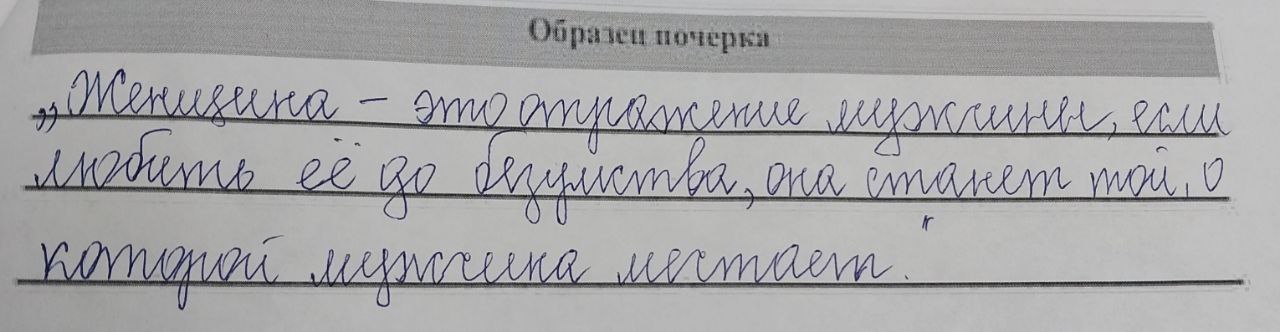 Образец почерка
„Женщина – это отражение мужчины, если
любить её до безумства, она станет той, о
которой мужчина мечтает."